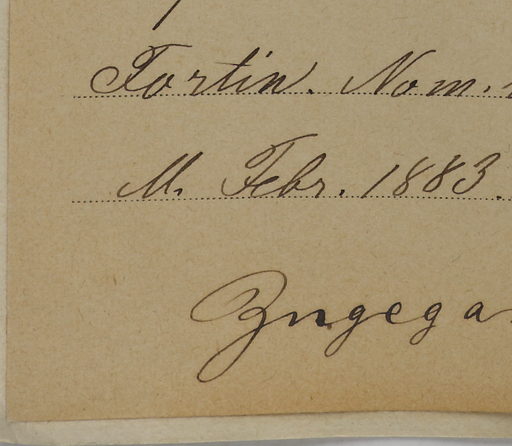 Fortin. Nom.
M. Febr. 1883.
Zngega